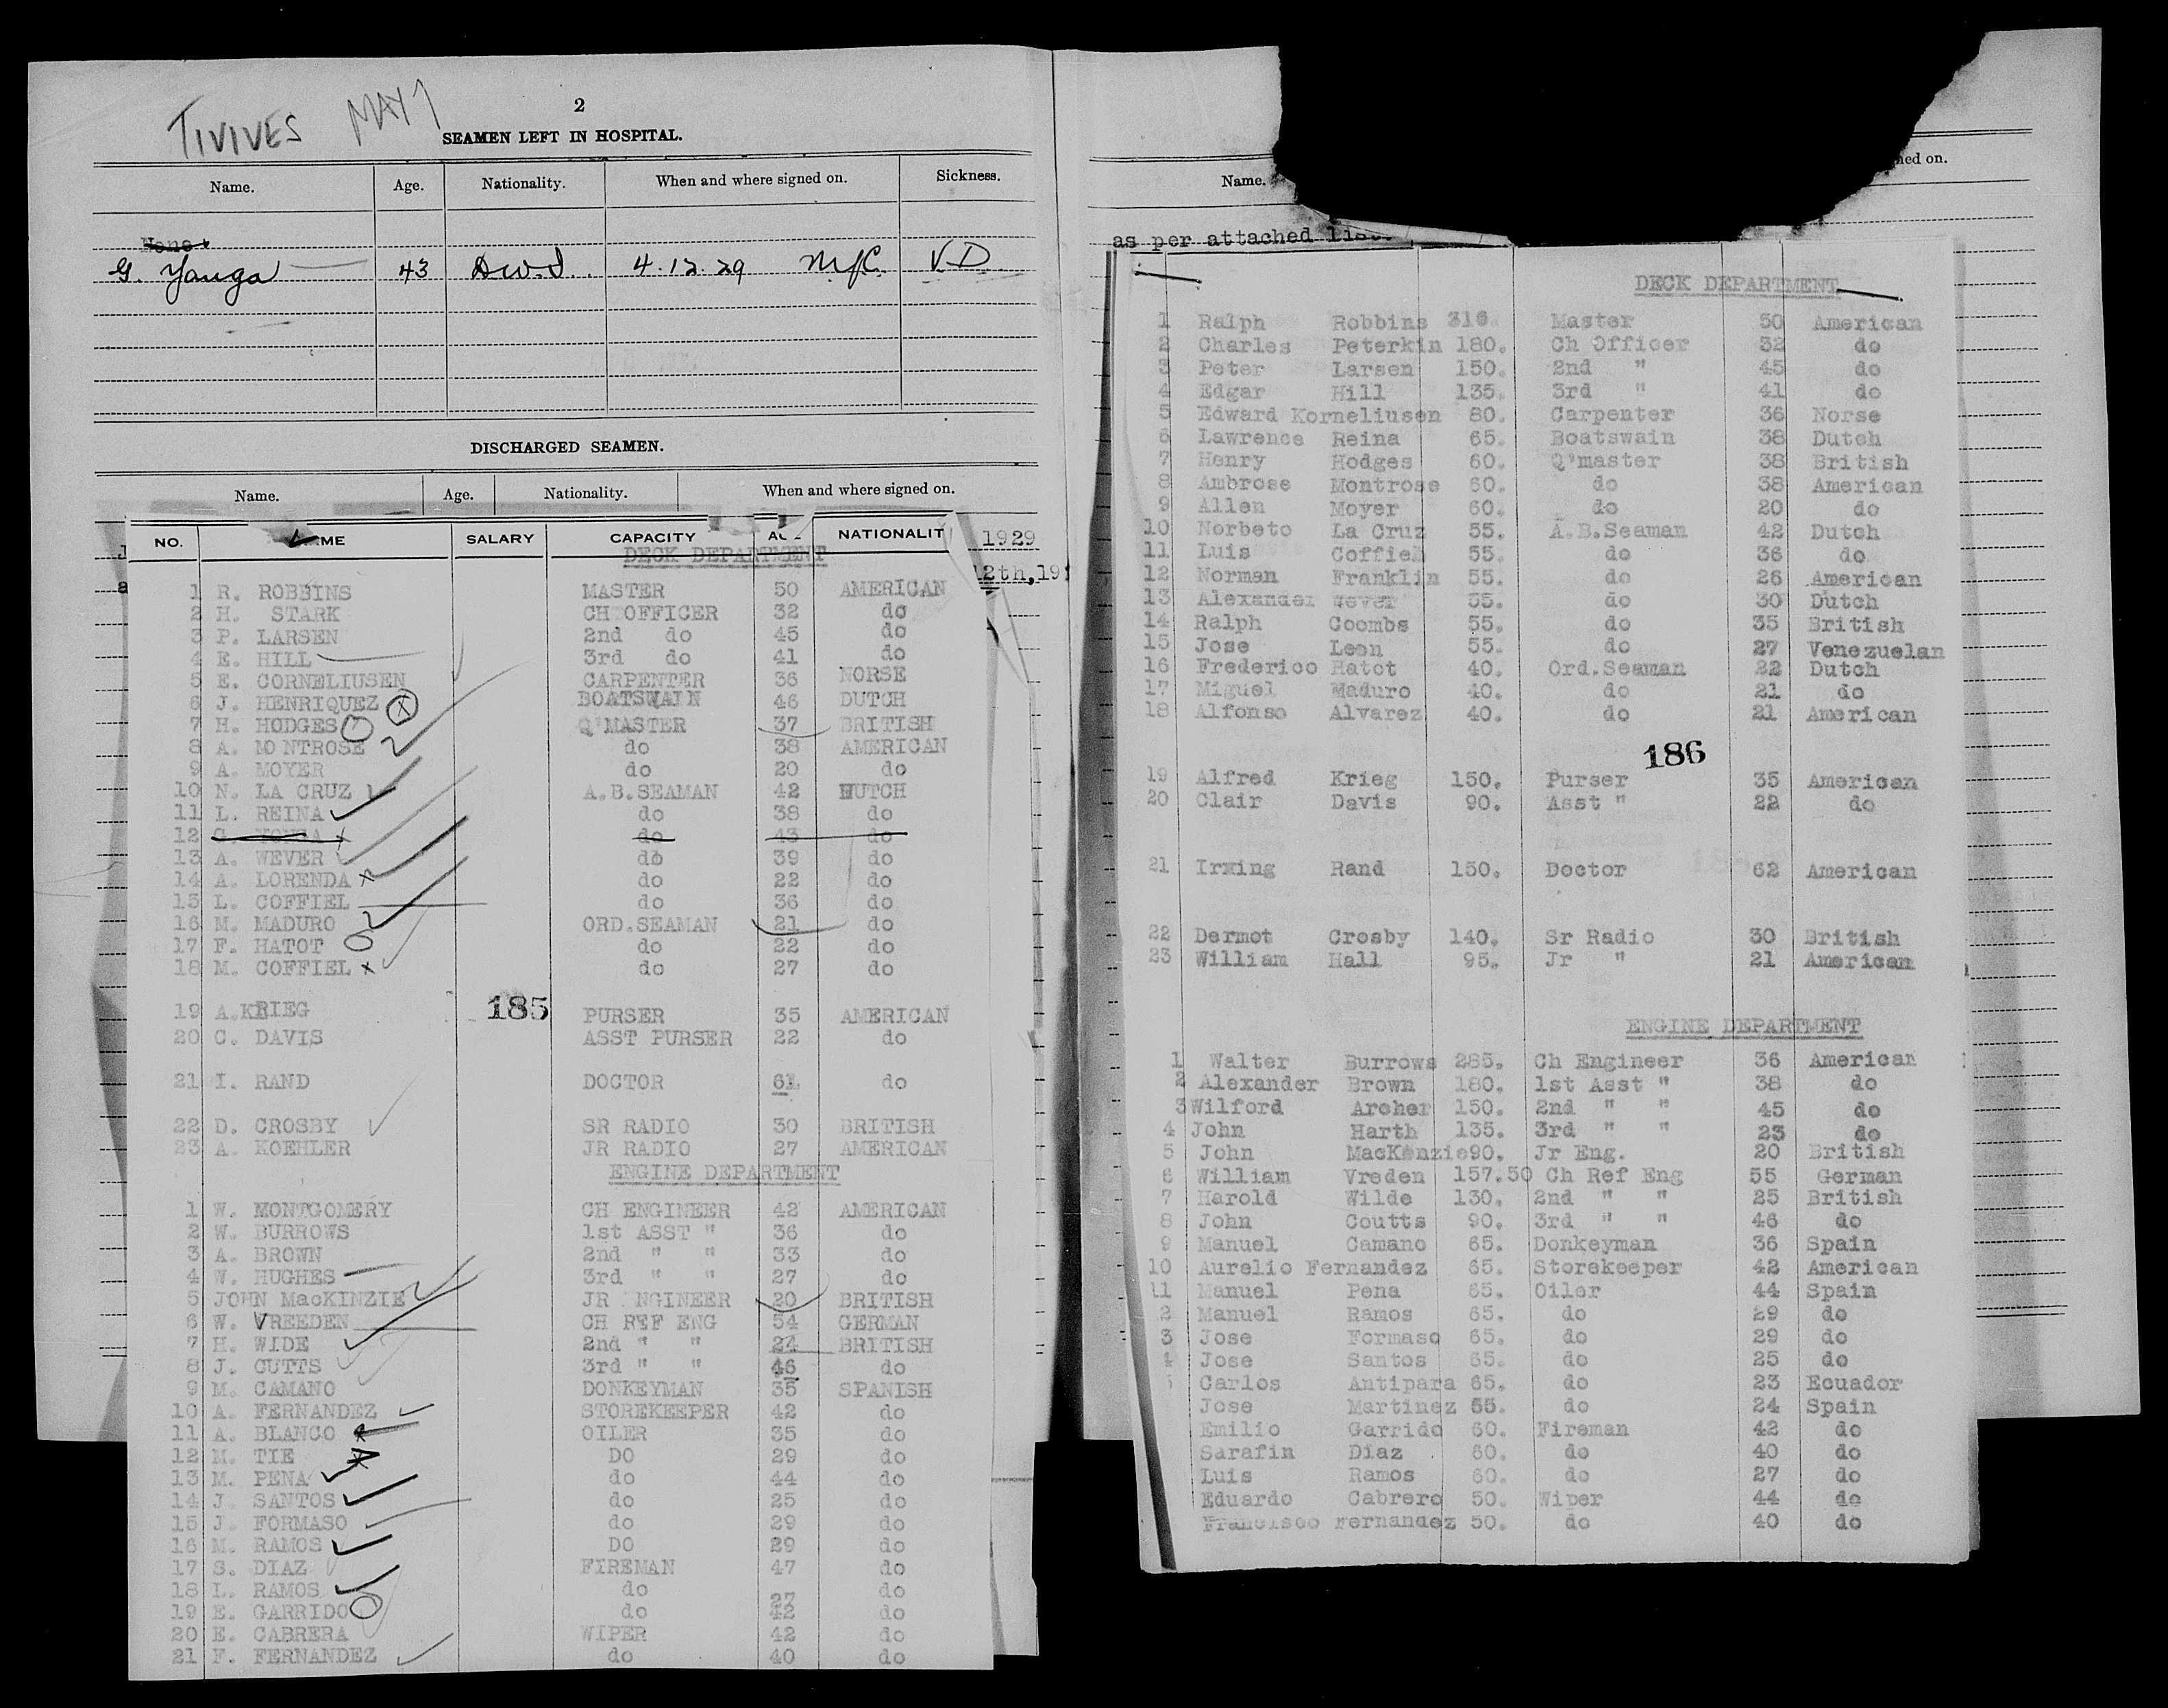 TIVIVES MAY 1
2
SEAMEN LEFT IN HOSPITAL.
Name. Age. Nationality. When and where signed on. Sickness.
None
G. Yanga 43 D.W.I. 4.12.29 V.D.
DISCHARGED SEAMEN.
Name. Age. Nationality. When and where signed on.
1929
12th, 19
NO. NAME SALARY CAPACITY NATIONALIT
DECK DEPARTMENT
1 R. ROBBINS MASTER 50 AMERICAN
2 H. STARK CH OFFICER 32 do
3 P. LARSEN 2nd do 45 do
4 E. HILL 3rd do 41 do
5 E. CORNELIUSEN CARPENTER 36 NORSE
6 J. HENRIQUEZ BOATSWAIN 46 DUTCH
7 H. HODGES Q'MASTER 37 BRITISH
8 A. MONTROSE do 38 AMERICAN
9 A. MOYER do 20 do
10 N. LA CRUZ A.B.SEAMAN 42 DUTCH
11 L. REINA do 38 do
12 do 43 do
13 A. WEVER do 39 do
14 A. LORENDA do 22 do
15 L. COFFIEL do 36 do
16 M. MADURO ORD.SEAMAN 21 do
17 F. HATOT do 22 do
18 M. COFFIEL do 27 do
185
19 A.KRIEG PURSER 35 AMERICAN
20 C. DAVIS ASST PURSER 22 do
21 I. RAND DOCTOR 61 do
22 D. CROSBY SR RADIO 30 BRITISH
23 A. KOEHLER JR RADIO 27 AMERICAN
ENGINE DEPARTMENT
1 W. MONTGOMERY CH ENGINEER 42 AMERICAN
2 W. BURROWS 1st ASST " 36 do
3 A. BROWN 2nd " " 33 do
4 W. HUGHES 3rd " " 27 do
5 JOHN MacKINZIE JR NGINEER 20 BRITISH
6 W. VREEDEN CH REF ENG 54 GERMAN
7 H. WIDE 2nd " " 24 BRITISH
8 J. CUTTS 3rd " " 46 do
9 M. CAMANO DONKEYMAN 35 SPANISH
10 A. FERNANDEZ STOREKEEPER 42 do
11 A. BLANCO OILER 35 do
12 M. TIE DO 29 do
13 M. PENA do 44 do
14 J. SANTOS do 25 do
15 J. FORMASO do 29 do
16 M. RAMOS DO 29 do
17 S. DIAZ FIREMAN 47 do
18 L. RAMOS do 27 do
19 E. GARRIDO do 42 do
20 E. CABRERA WIPER 42 do
21 F. FERNANDEZ do 40 do
Name. ned on.
as per attached list.
DECK DEPARTMENT
1 Ralph Robbins 316 Master 50 American
2 Charles Peterkin 180. Ch Officer 32 do
3 Peter Larsen 150. 2nd " 45 do
4 Edgar Hill 135. 3rd " 41 do
5 Edward Korneliusen 80. Carpenter 36 Norse
6 Lawrence Reina 65. Boatswain 38 Dutch
7 Henry Hodges 60. Q'master 38 British
8 Ambrose Montrose 60. do 38 American
9 Allen Moyer 60. do 20 do
10 Norbeto La Cruz 55. A.B.Seaman 42 Dutch
11 Luis Coffiel 55. do 36 do
12 Norman Franklin 55. do 26 American
13 Alexander Wever 55. do 30 Dutch
14 Ralph Coombs 55. do 35 British
15 Jose Leon 55. do 27 Venezuelan
16 Frederico Hatot 40. Ord.Seaman 22 Dutch
17 Miguel Maduro 40. do 21 do
18 Alfonso Alvarez 40. do 21 American
186
19 Alfred Krieg 150. Purser 35 American
20 Clair Davis 90. Asst " 22 do
21 Irwing Rand 150. Doctor 62 American
22 Dermot Crosby 140. Sr Radio 30 British
23 William Hall 95. Jr " 21 American
ENGINE DEPARTMENT
1 Walter Burrows 285. Ch Engineer 36 American
2 Alexander Brown 180. 1st Asst " 38 do
3 Wilford Archer 150. 2nd " " 45 do
4 John Harth 135. 3rd " " 23 do
5 John MacKenzie 90. Jr Eng. 20 British
6 William Vreden 157.50 Ch Ref Eng 55 German
7 Harold Wilde 130. 2nd " " 25 British
8 John Coutts 90. 3rd " " 46 do
9 Manuel Camano 65. Donkeyman 36 Spain
10 Aurelio Fernandez 65. Storekeeper 42 American
11 Manuel Pena 65. Oiler 44 Spain
2 Manuel Ramos 65. do 29 do
3 Jose Formaso 65. do 29 do
4 Jose Santos 65. do 25 do
5 Carlos Antipara 65. do 23 Ecuador
Jose Martinez 65. do 24 Spain
Emilio Garrido 60. Fireman 42 do
Sarafin Diaz 60. do 40 do
Luis Ramos 60. do 27 do
Eduardo Cabrero 50. Wiper 44 do
Francisco Fernandez 50. do 40 do